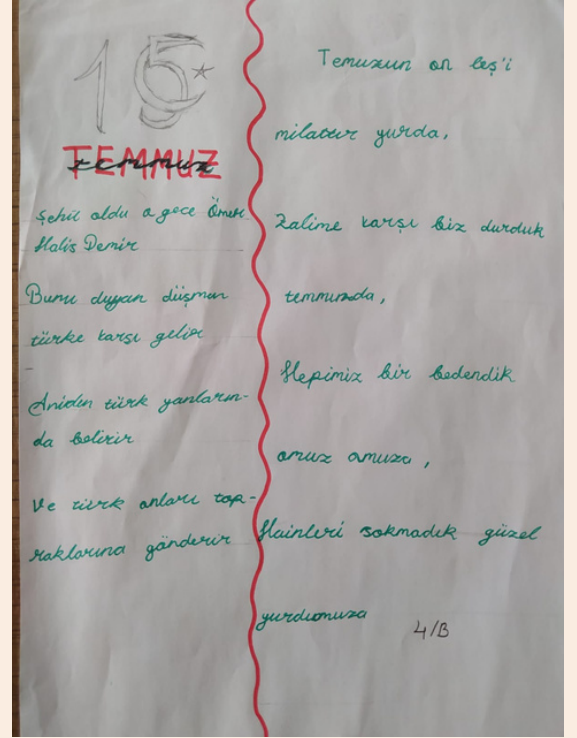 15
TEMMUZ
temmuz
Şehit oldu o gece Ömer
Halis Demir
Bunu duyan düşman
türke karşı gelir
Aniden türk yanların-
da belirir
Ve türk onları top-
raklarına gönderir
Temuzun on beş'i
milattır yurda,
Zalime karşı biz durduk
temmuzda,
Hepimiz bir bedendik
omuz omuza,
Hainleri sokmadık güzel
yurdumuza
4/B